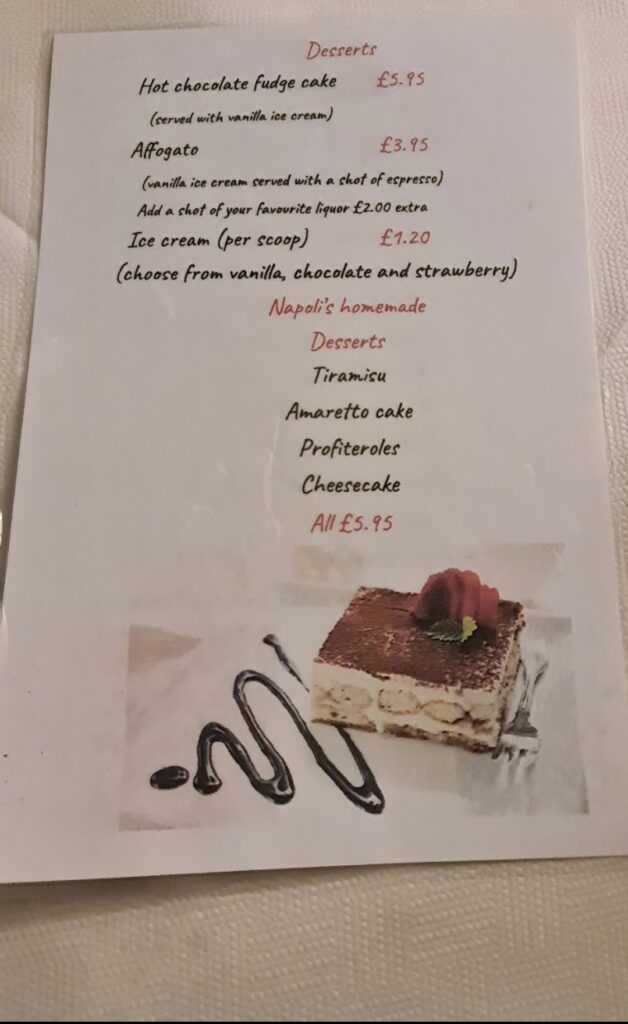 Desserts
Hot chocolate fudge cake £5.95
(served with vanilla ice cream)
Affogato £3.95
(vanilla ice cream served with a shot of espresso)
Add a shot of your favourite liquor £2.00 extra
Ice cream (per scoop) £1.20
(choose from vanilla, chocolate and strawberry)
Napoli's homemade
Desserts
Tiramisu
Amaretto cake
Profiteroles
Cheesecake
All £5.95